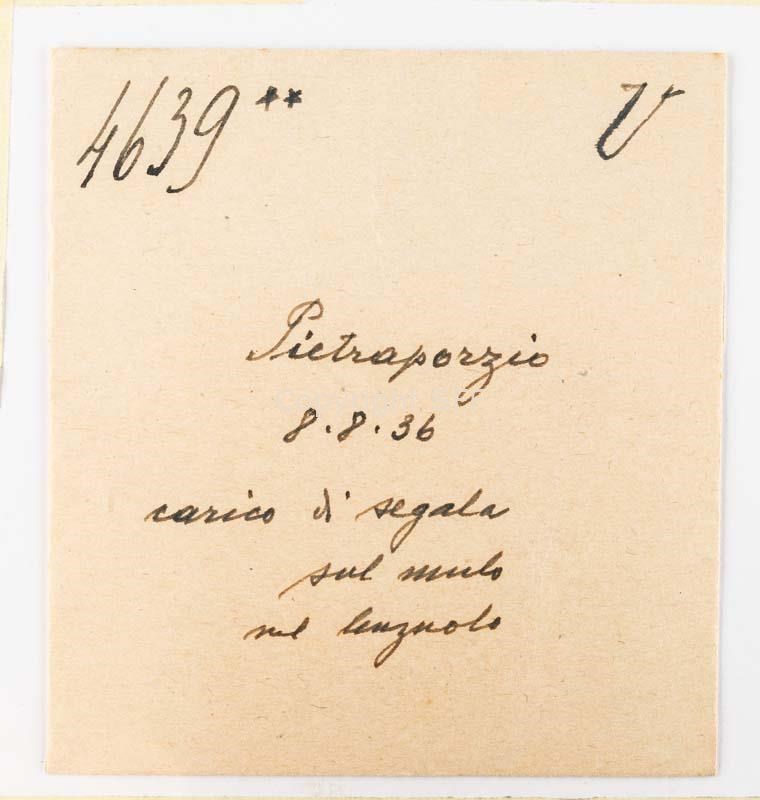 4639 ** V
Pietraporzio
8.8.36
carico di segala
sul mulo
nel lenzuolo